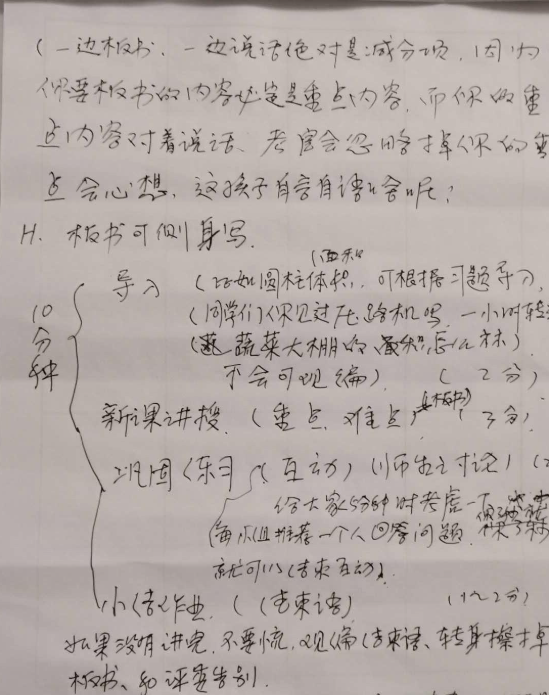 (一边板书、一边说话绝对是减分项,因为
你要板书的内容必定是重点内容,而你的重
点内容对着说话、考官会忽略掉你的重
点会心想,这孩子自言自语啥呢;
H. 板书可侧身写.
10分钟
导入 (比如圆柱体积、可根据习题导入,
(面积
(同学们你见过压路机吗,一小时转
蔬菜大棚的面积怎么求)
不会可现编) (2分)
新课讲授. (重点、难点) (板书) (3分)
巩固练习 (互动) (师生讨论)
给大家5分钟时考虑一下
(每小组推荐一个人回答问题.
就可以结束互动).
小结作业. (结束语) (1~2分)
如果没有讲完,不要慌,现编结束语、转身擦掉
板书、和评委告别.